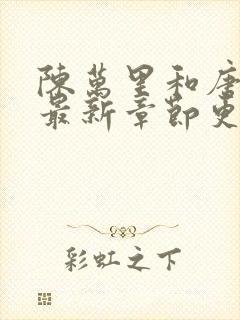 陳萬里和唐
最新章節更
彩虹之下